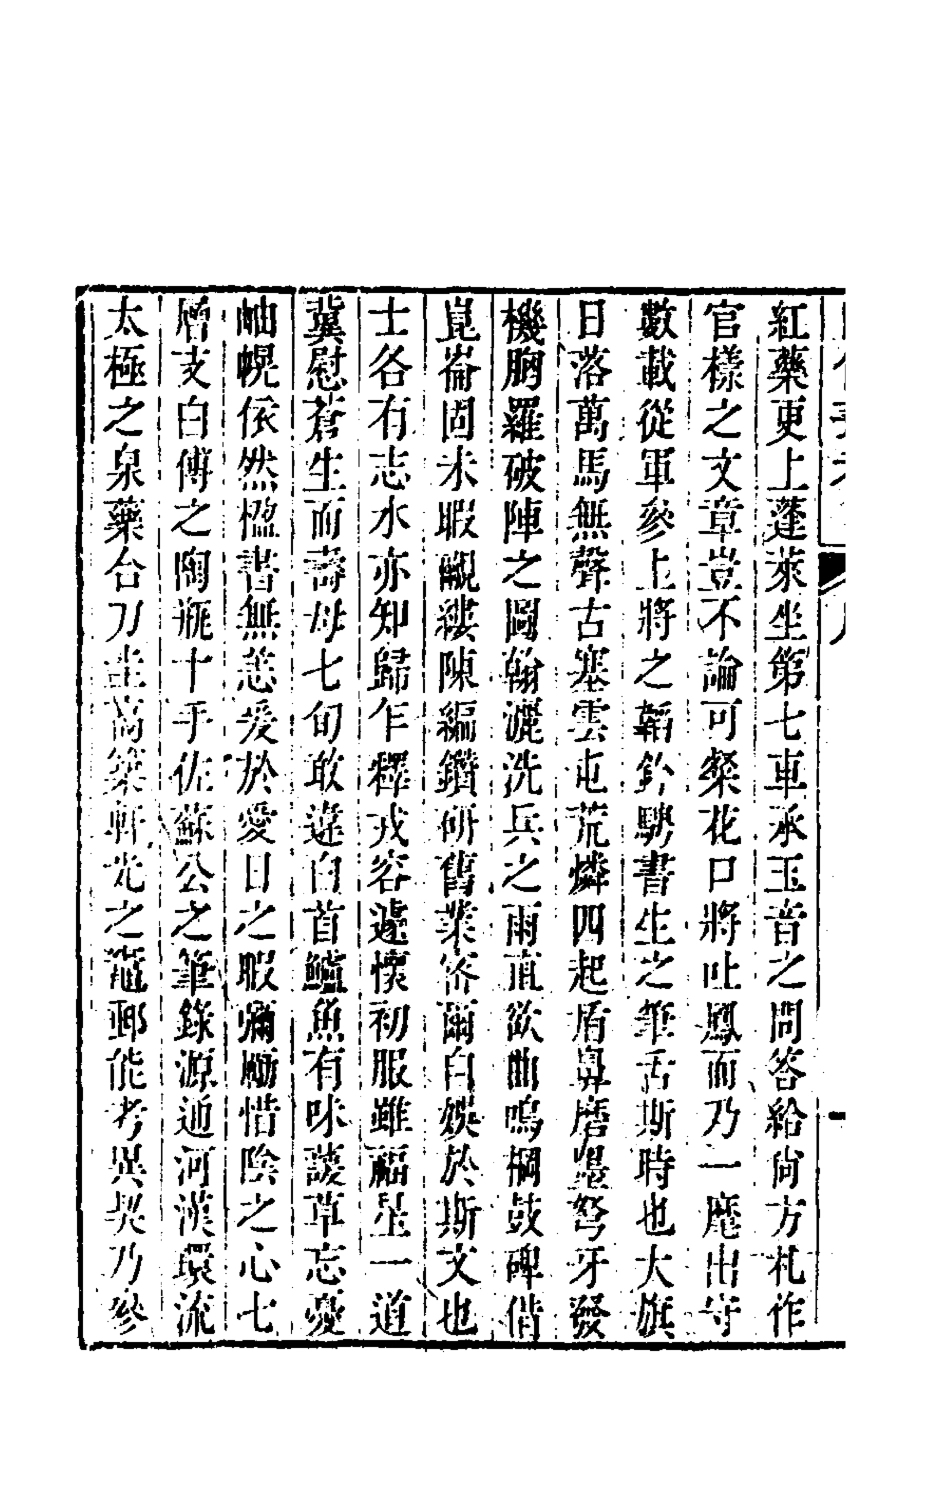 紅藥更上蓬萊坐第七車承玉音之問答給尙方札作
官樣之文章豈不論可粲花口將吐鳳而乃一麾出守
數載從軍參上將之韜鈐騁書生之筆舌斯時也大旗
日落萬馬無聲古塞雲屯荒燐四起盾鼻磨墨弩牙發
機胸羅破陣之圖翰灑洗兵之雨直欲曲鳴棡鼓碑偕
崑崙固未暇覼縷陳編鑽研舊業容爾自娛於斯文也
士各有志水亦知歸乍釋戎容遽懷初服雖福星一道
冀慰蒼生而壽母七旬敢違白首鱸魚有味諼草忘憂
岫幌依然楹書無恙爰於愛日之暇彌勵惜陰之心七
層支白傅之陶瓶十手佐蘇公之筆錄源通河漢環流
太極之泉藥合刀圭高築軒光之竈郵能考異契乃參